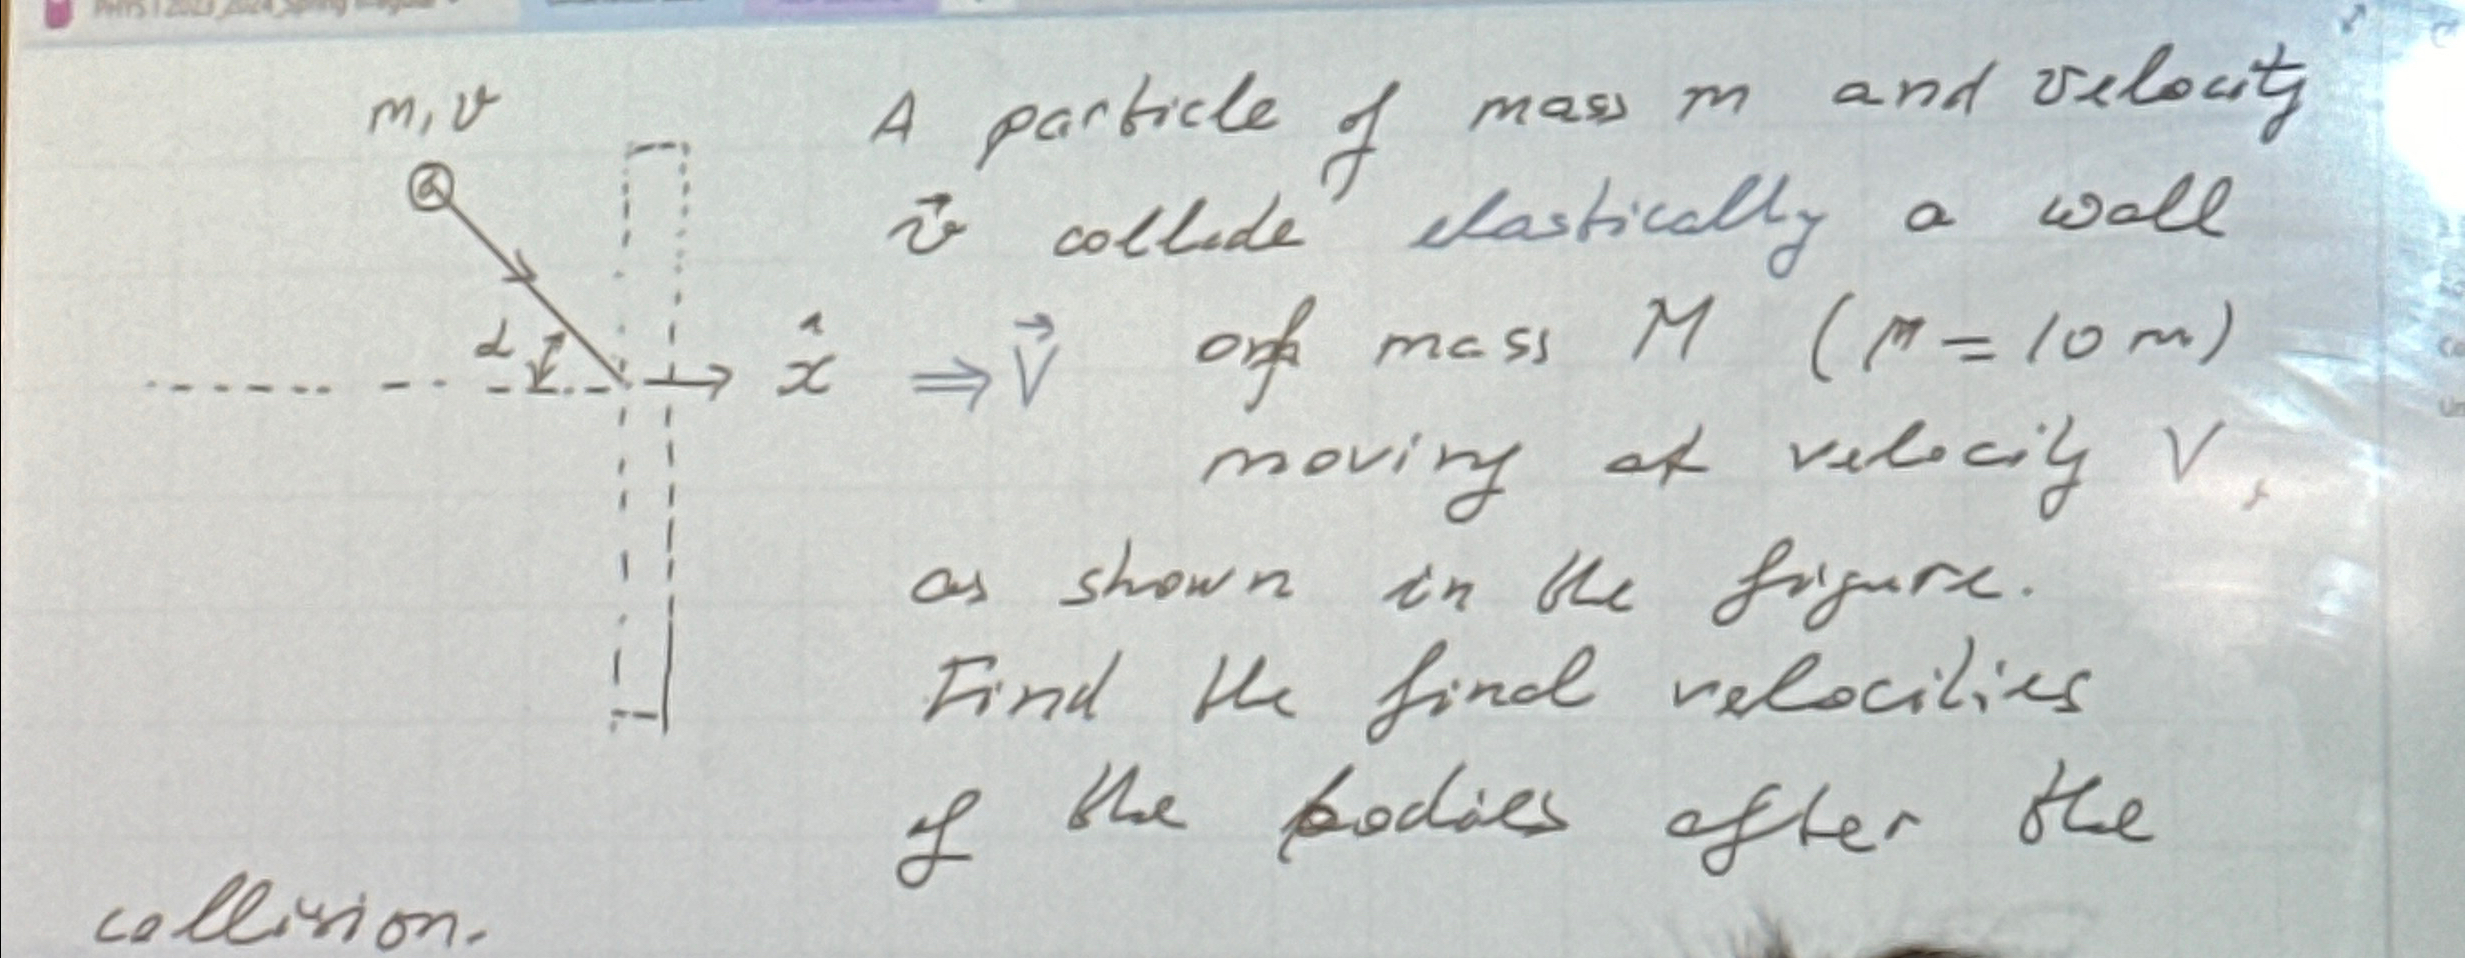 PHYS 1 2023_2024_Spring
m, v
A particle of mass m and velocity
v⃗ collide elastically a wall
α x̂ ⇒ V⃗ of mass M (M = 10 m)
moving at velocity V,
as shown in the figure.
Find the final velocities
of the bodies after the
collision.